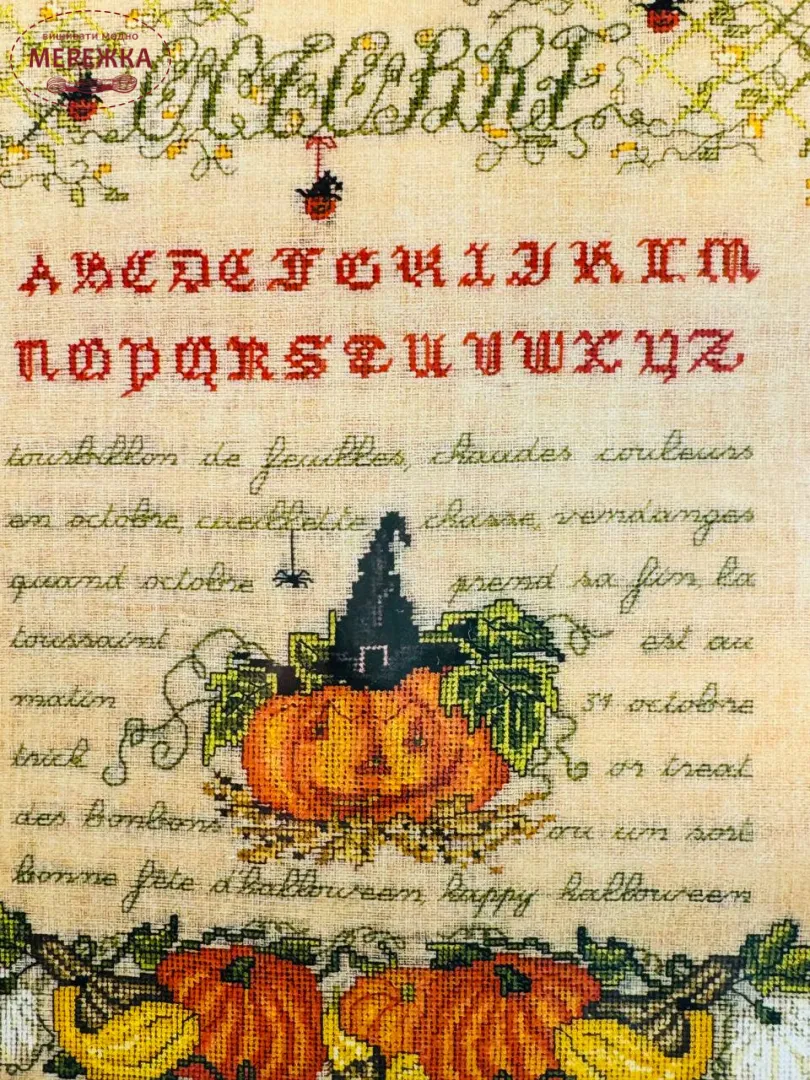 вишивати модно
МЕРЕЖКА
OCTOBRE
ABCDEFGHIJKLM
NOPQRSTUVWXYZ
tourbillon de feuilles, chaudes couleurs
en octobre, cueillette chasse, vendanges
quand octobre prend sa fin, la
toussaint est au
matin 31 octobre
trick or treat
des bonbons ou un sort
bonne fête d'halloween, happy halloween